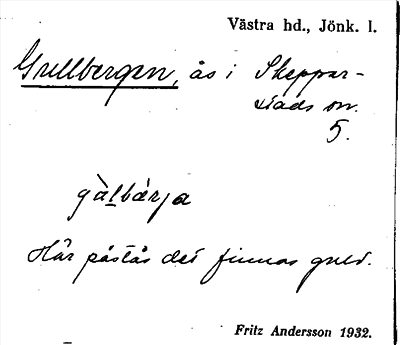 Västra hd., Jönk. l.
Gullbergen, ås i Skeppar-
stads sn.
5.
gàlbærja
Här påstås det finnas guld.
Fritz Andersson 1932.